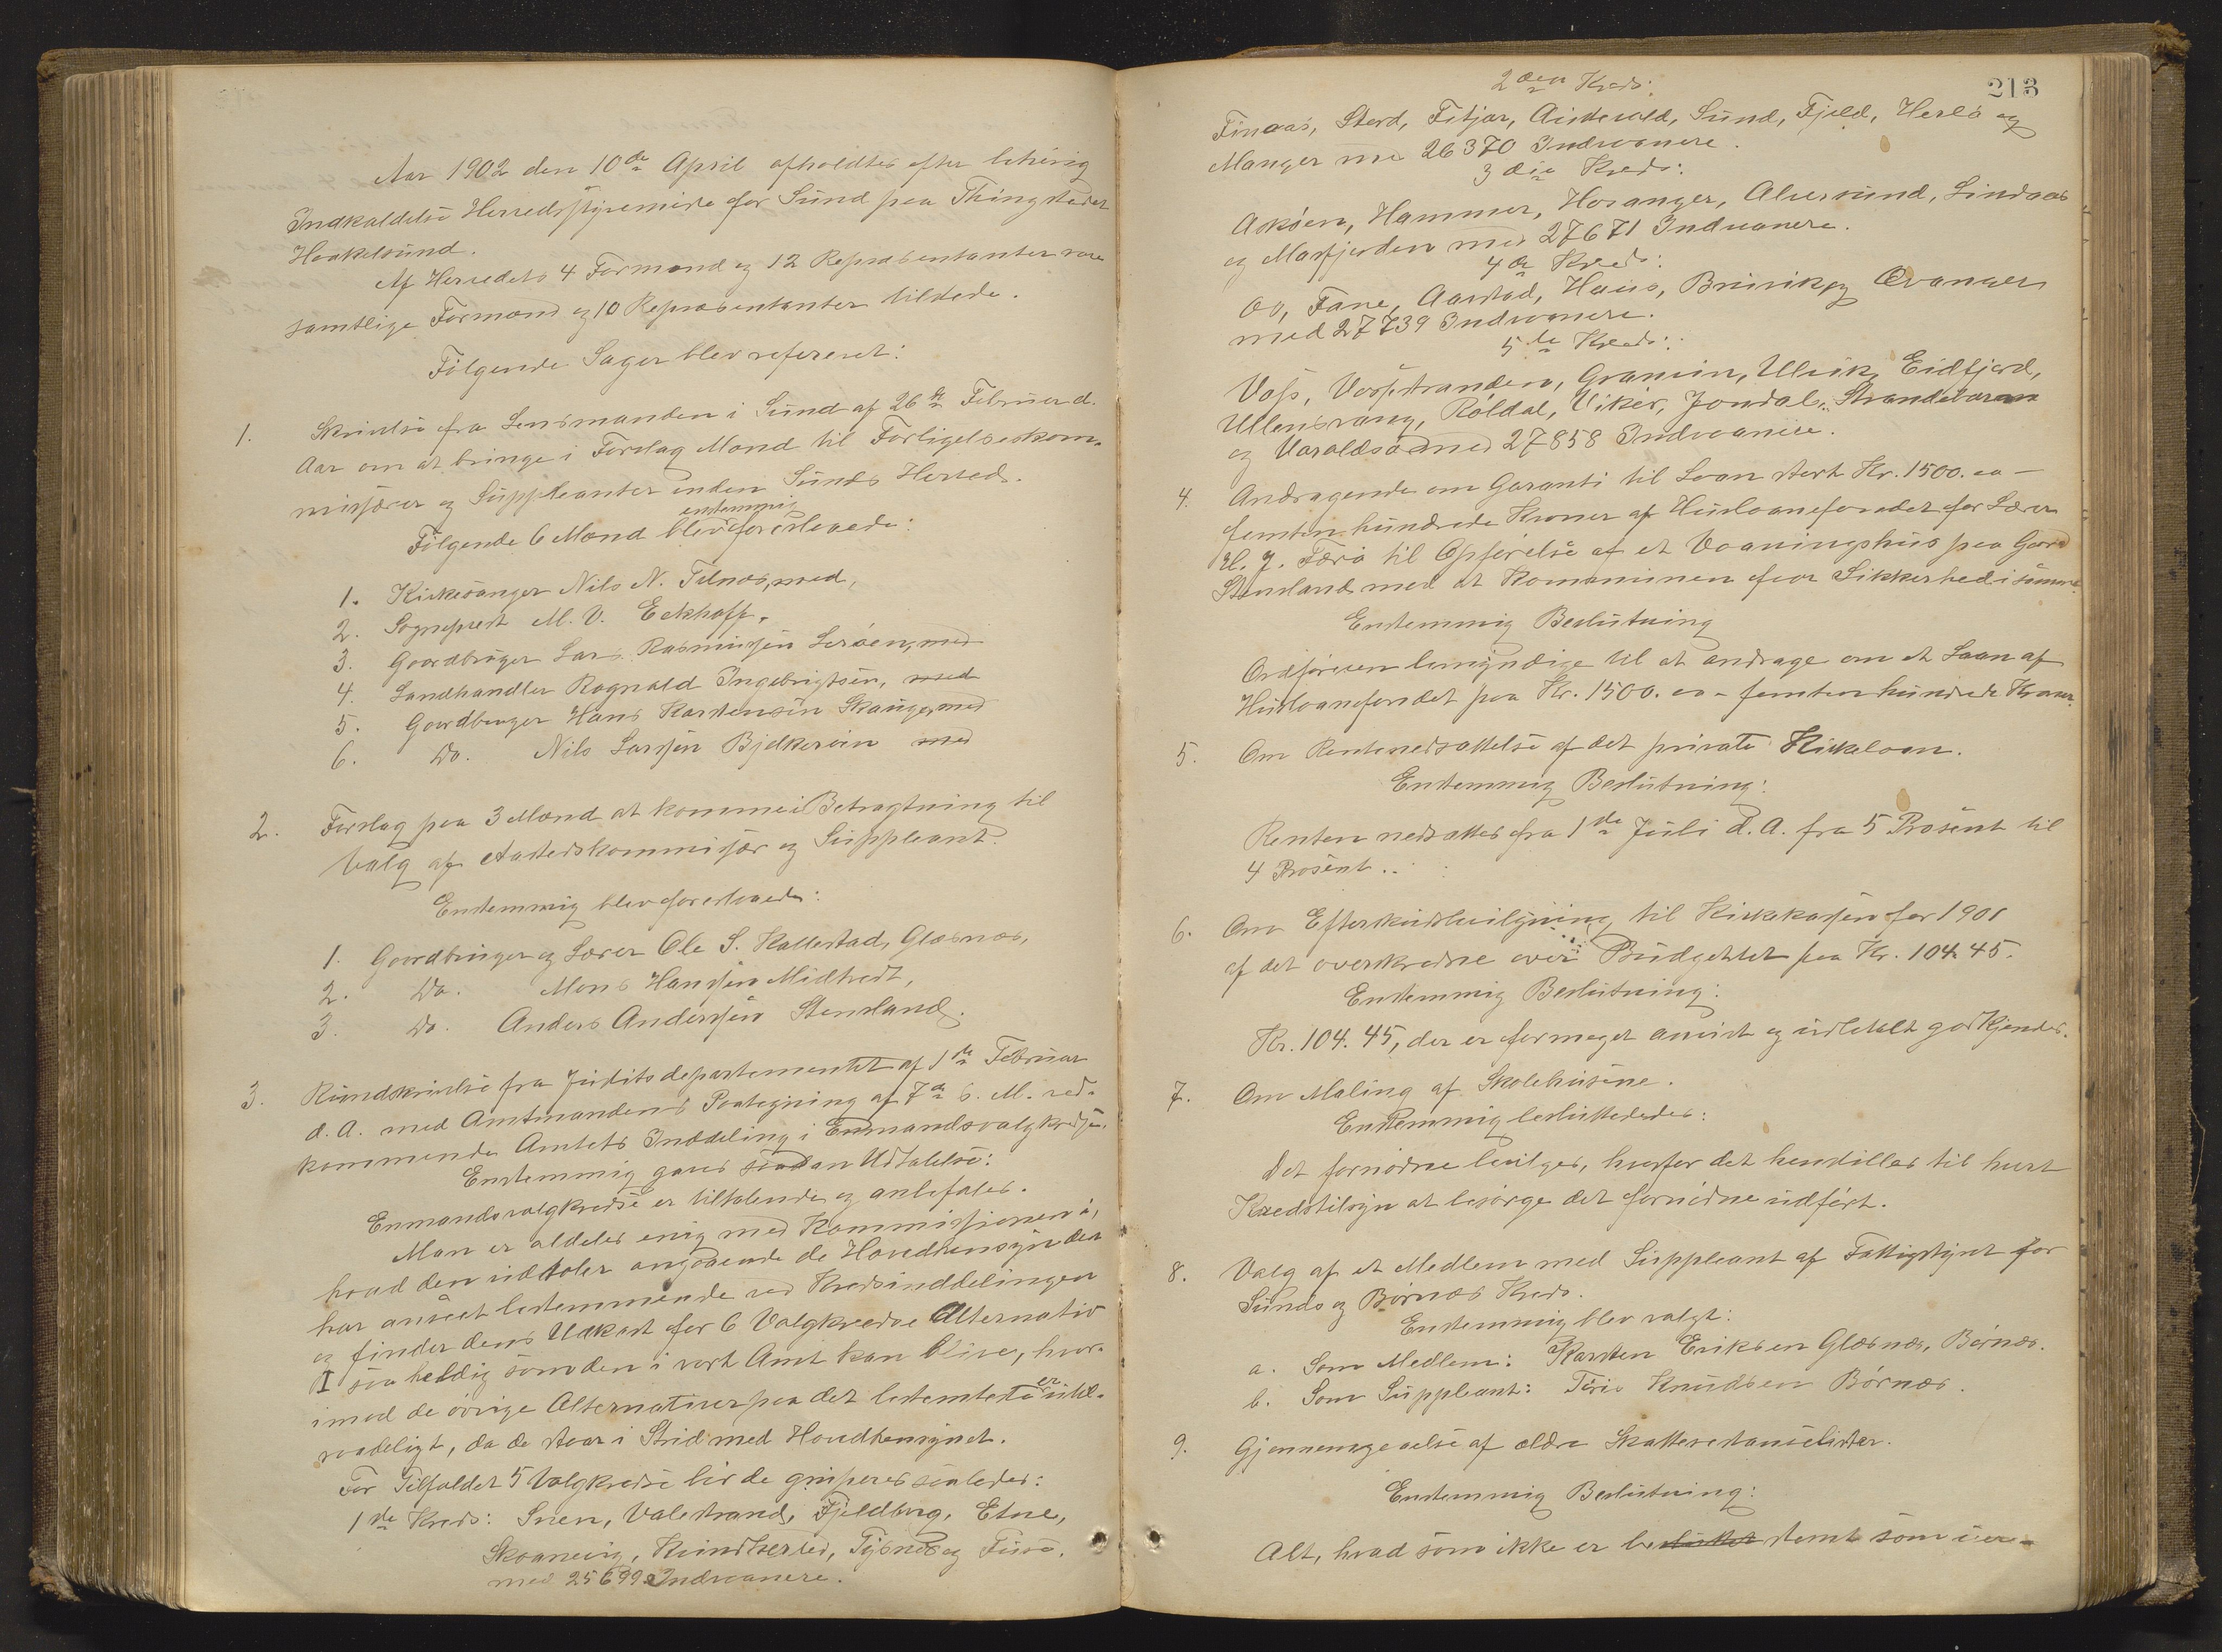 Aar 1902 den 10de April afholdtes efter lovhørig
Indkaldelse Herredsstyremøde for Sund paa Thingstedet
Haakelsund.
Af Herredets 4 Formænd og 12 Repræsentanter vare
samtlige Formænd og 10 Repræsentanter tilstede.
Følgende Sager blev refereret:
1. Skrivelse fra Lensmanden i Sund af 26de Februar d.
Aar om at bringe i Forslag Mænd til Forligelseskom-
missærer og Suppleanter inden Sunds Herred.
enstemmig
Følgende 6 Mænd blev foreslaaede:
1. Kirkesanger Nils N. Telnæs, med,
2. Sogneprest M. V. Eckhoff,
3. Gaardbruger Lars Rasmussen Lerøen, med
4. Landhandler Ragnvald Ingebrigtsen, med
5. Gaardbruger Hans Karstensen Skauge, med
6. Do. Nils Larssen Bjelkerøen med
2. Forslag paa 3 Mænd at komme i Betragtning til
Valg af Aastedskommissær og Suppleant.
Enstemmig blev foreslaaede:
1. Gaardbruger og Lærer Ole S. Kallestad, Glæsnæs,
2. Do. Mons Hanssen Midttvedt,
3. Do. Anders Anderssen Stensland.
3. Rundskrivelse fra Justitsdepartementet af 1ste Februar
d. A. med Amtmandens Paategning af 7de s. M. ved-
kommende Amtets Inddeling i Enmandsvalgkredse.
Enstemmig gaves saadan Udtalelse:
Enmandsvalgkredse er tiltalende og anbefales.
Man er aldeles enig med Kommissionen i,
hvad den udtaler angaaende de Hovedhensyn den
har anseet bestemmende ved Kredsinddelingen
og finder dens Udkast for 6 Valgkredse Alternativ
I saa heldig som den i vort Amt kan blive, hvor-
imod de øvrige Alternativer paa det bestemteste er util-
raadeligt, da de staar i Strid med Hovedhensynet.
For Tilfældet 5 Valgkredse bør de gruperes saaledes:
1ste Kreds: Sveen, Valestrand, Fjeldberg, Etne,
Skaanevig, Kvindherred, Tysnes og Fuse.
med 25699 Indvaanere.
213
2den Kreds:
Finaas, Stord, Fitjar, Austevold, Sund, Fjeld, Herlø og
Manger med 26370 Indvaanere.
3die Kreds:
Askøen, Hammer, Hosanger, Alversund, Lindaas
og Masfjorden med 27671 Indvaanere.
4de Kreds:
Os, Fane, Aarstad, Haus, Bruvik og Evanger
med 27739 Indvaanere.
5te Kreds:
Voss, Vossestranden, Granvin, Ulvik, Eidfjord,
Ullensvang, Røldal, Vikør, Jondal, Strandebarm
og Varaldsø med 27858 Indvaanere.
4. Andragende om Garanti til Laan stort Kr. 1500.00 –
femten hundrede Kroner af Huslaanefondet for Lærer
H. J. Færø til Opførelse af et Vaaningshus paa Gaard
Stensland med at Kommunen faar Sikkerhed i samme.
Enstemmig Beslutning
Ordføreren bemyndiges til at andrage om et Laan af
Huslaanefondet paa Kr. 1500.00 – femten hundrede Kroner.
5. Om Rentenedsættelse af det private Kirkelaan.
Enstemmig Beslutning:
Renten nedsættes fra 1ste Juli d. A. fra 5 Prosent til
4 Prosent.
6. Om Efterskudsbevilgning til Kirkekassen for 1901
af det overskredne over Budgettet paa Kr. 104.45.
Enstemmig Beslutning:
Kr. 104.45, der er formeget anvist og udbetalt godkjendes.
7. Om Maling af Skolehusene.
Enstemmig besluttededes:
Det fornødne bevilges, hvorfor det henstilles til hvert
Kredstilsyn at besørge det fornødne udført.
8. Valg af et Medlem med Suppleant af Fattigstyret for
Sunds og Børnæs Kreds.
Enstemmig blev valgt:
a. Som Medlem: Karsten Eriksen Glæsnæs, Børnæs.
b. Som Suppleant: Tøris Knudsen Børnæs.
9. Gjennemgaaelse af ældre Skatterestanselister.
Enstemmig Beslutning:
Alt, hvad som ikke er bestemt som uer-